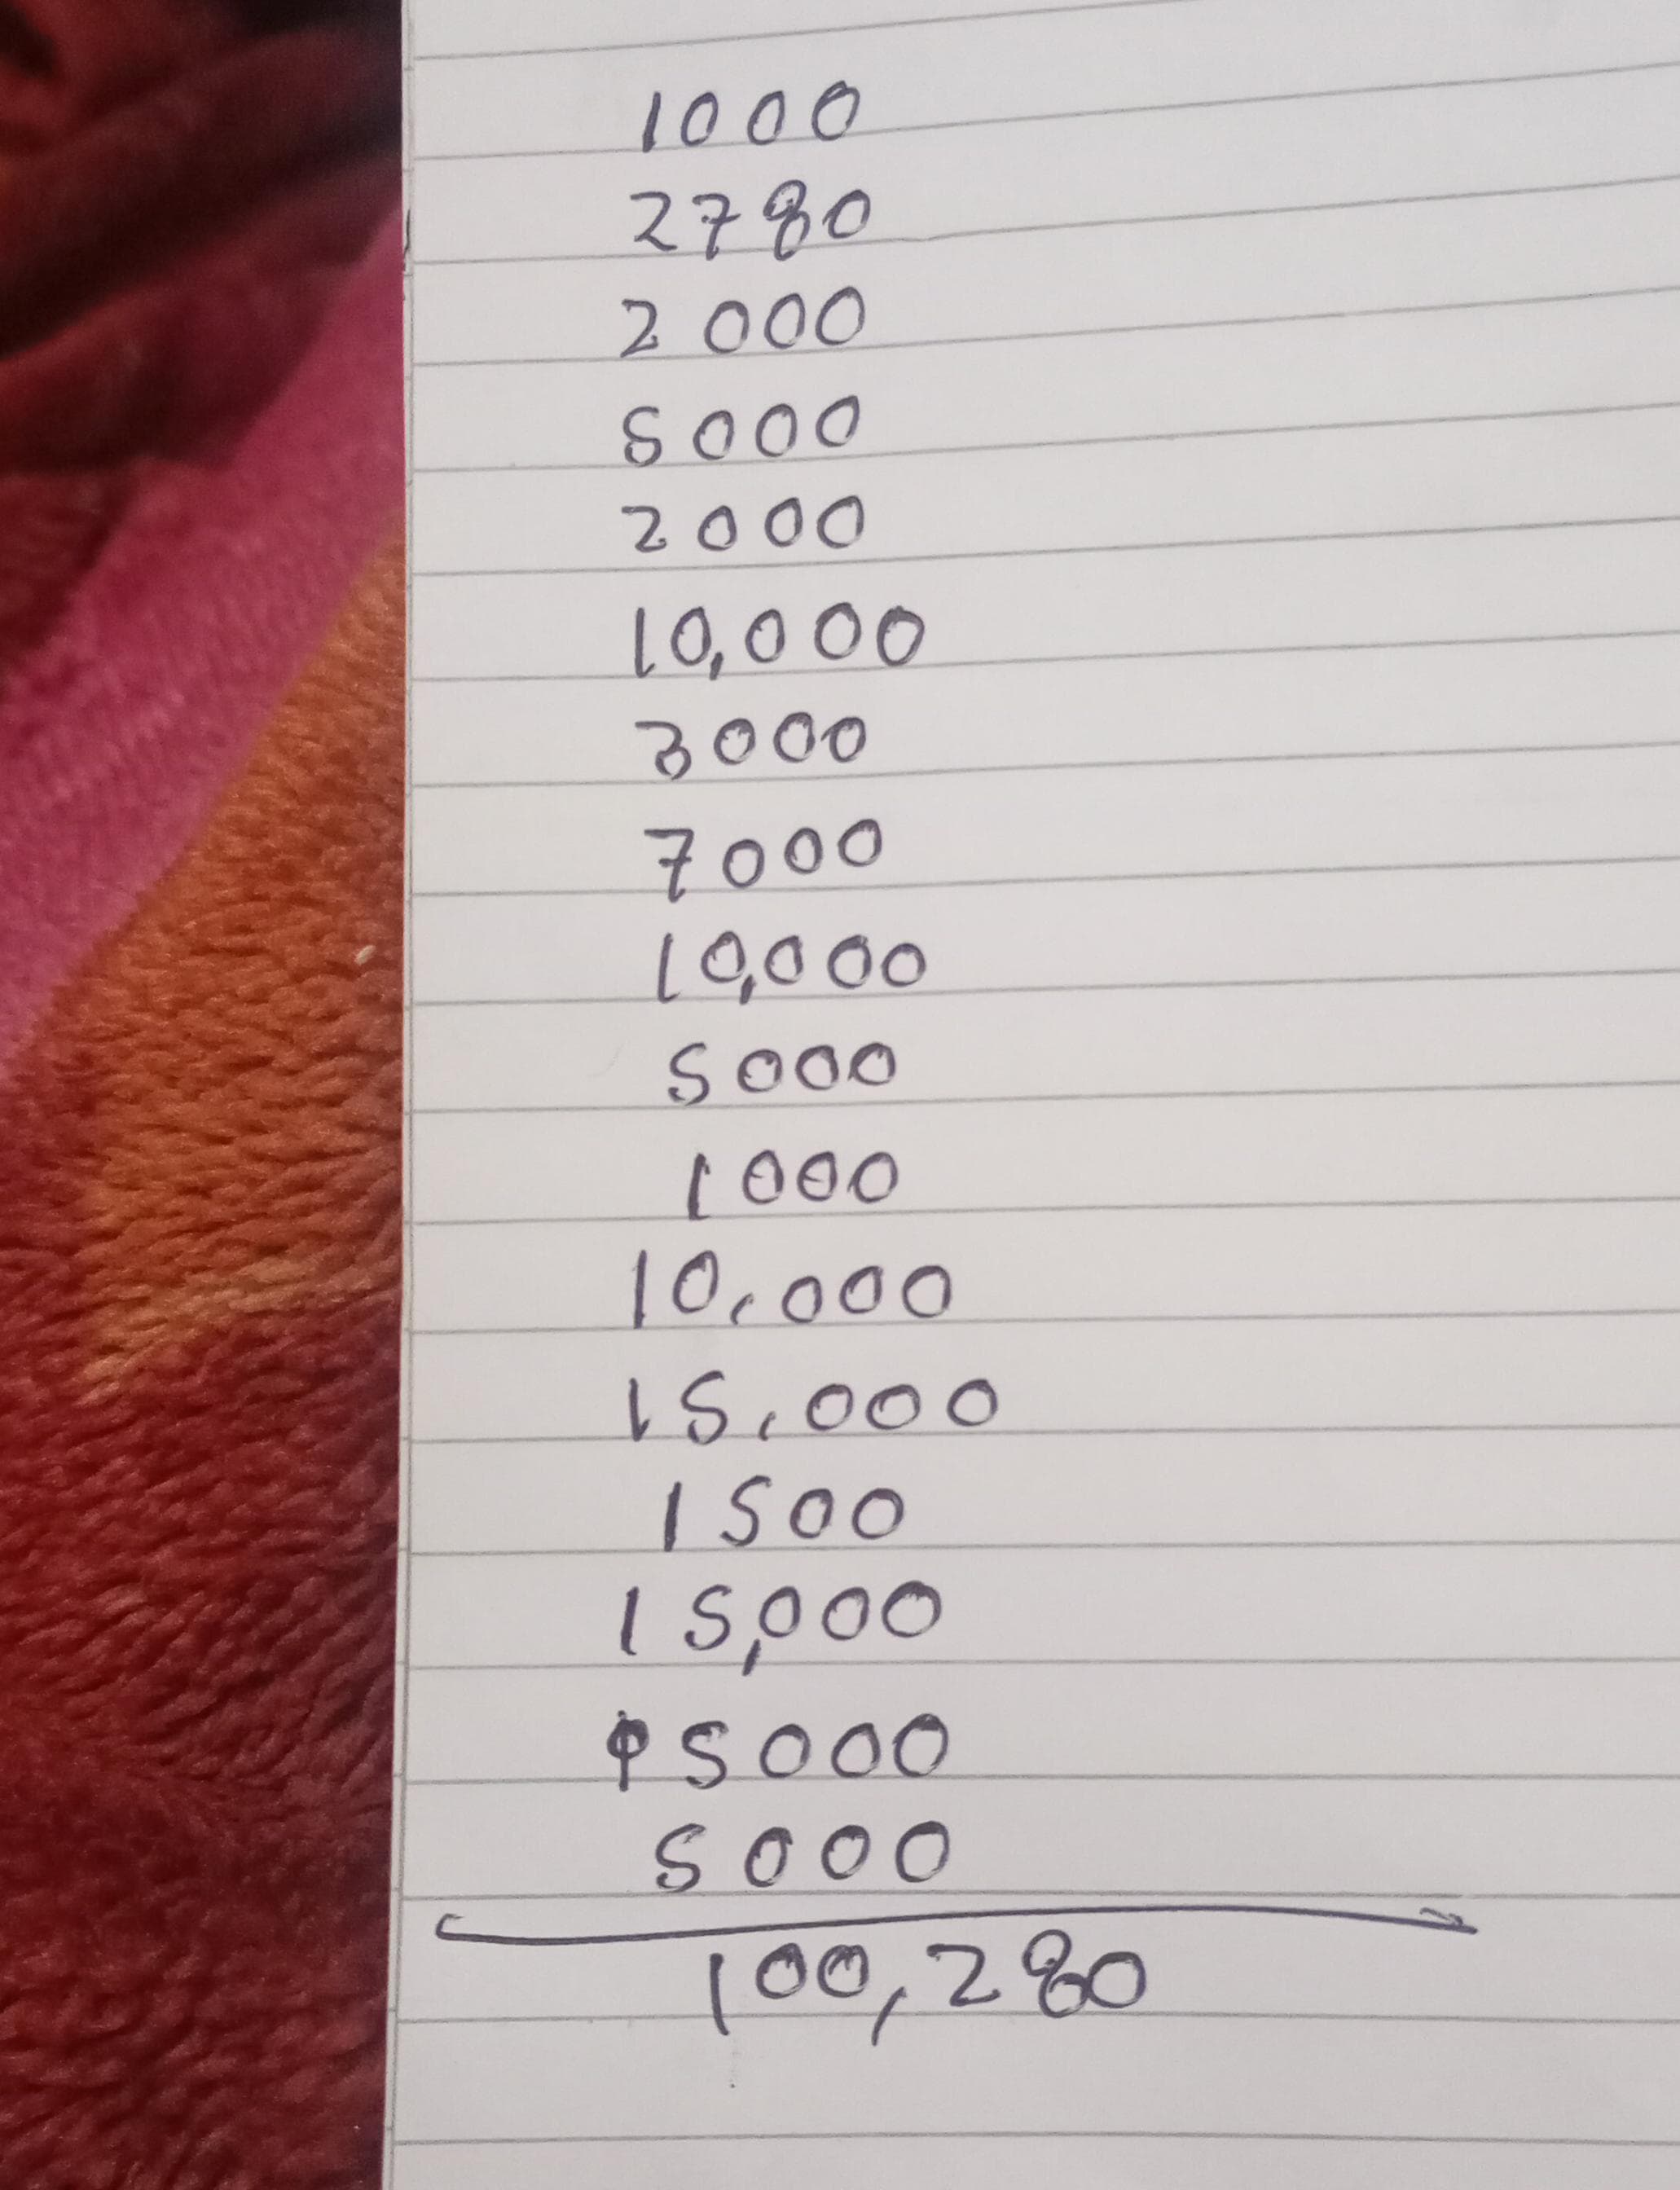 1000
2780
2000
5000
2000
10,000
3000
7000
10,000
5000
1000
10,000
15,000
1500
15,000
5000
5000
100,280